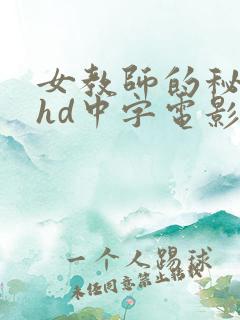 女教师的秘
hd中字电影
一个人踢球
未经同意禁止转载